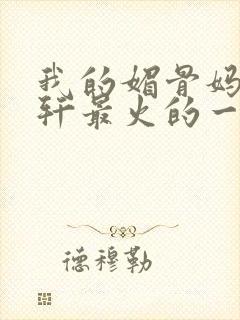 我的媚骨妈
轩最火的一
德穆勒